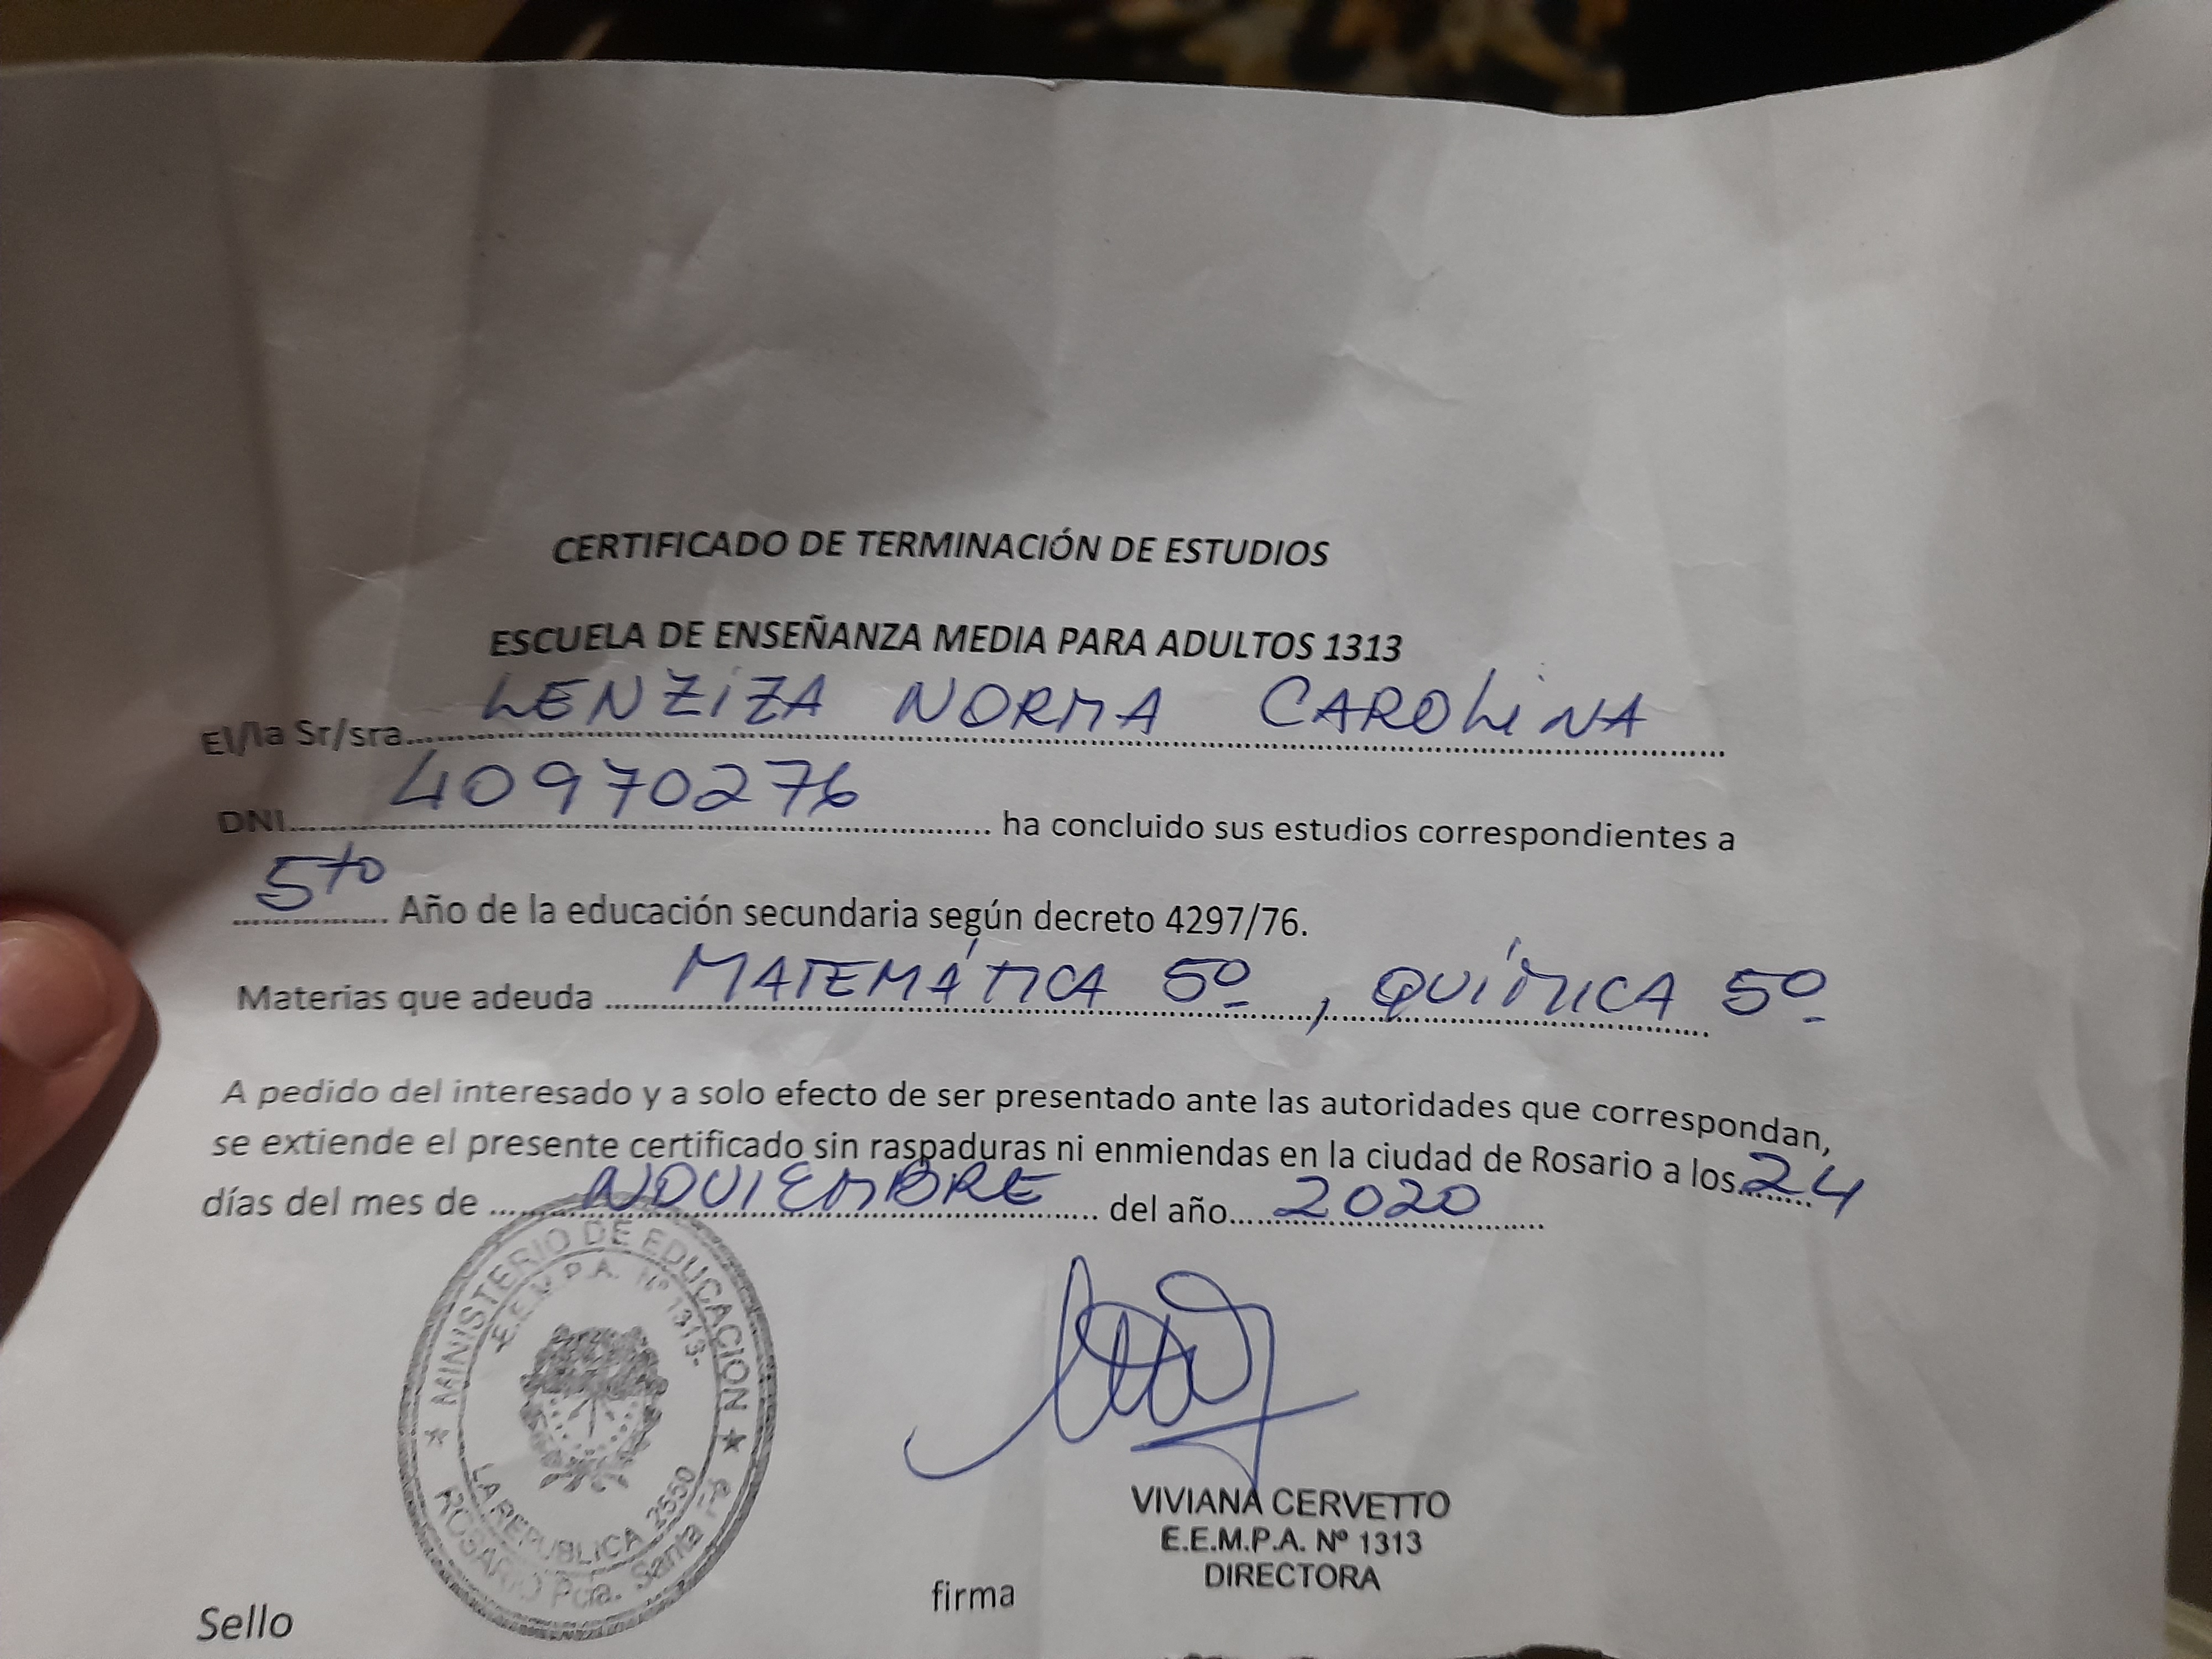 CERTIFICADO DE TERMINACIÓN DE ESTUDIOS
ESCUELA DE ENSEÑANZA MEDIA PARA ADULTOS 1313
El/la Sr/sra....LENZIZA NORMA CAROLINA....
DNI....40970276.... ha concluido sus estudios correspondientes a
....5to.... Año de la educación secundaria según decreto 4297/76.
Materias que adeuda ....MATEMÁTICA 5º, QUÍMICA 5º
A pedido del interesado y a solo efecto de ser presentado ante las autoridades que correspondan,
se extiende el presente certificado sin raspaduras ni enmiendas en la ciudad de Rosario a los....24
días del mes de ....NOVIEMBRE.... del año....2020....
MINISTERIO DE EDUCACION
-E.E.M.P.A. Nº 1313-
LA REPUBLICA 2550
ROSARIO Pcia. Santa Fé
VIVIANA CERVETTO
E.E.M.P.A. Nº 1313
DIRECTORA
firma
Sello